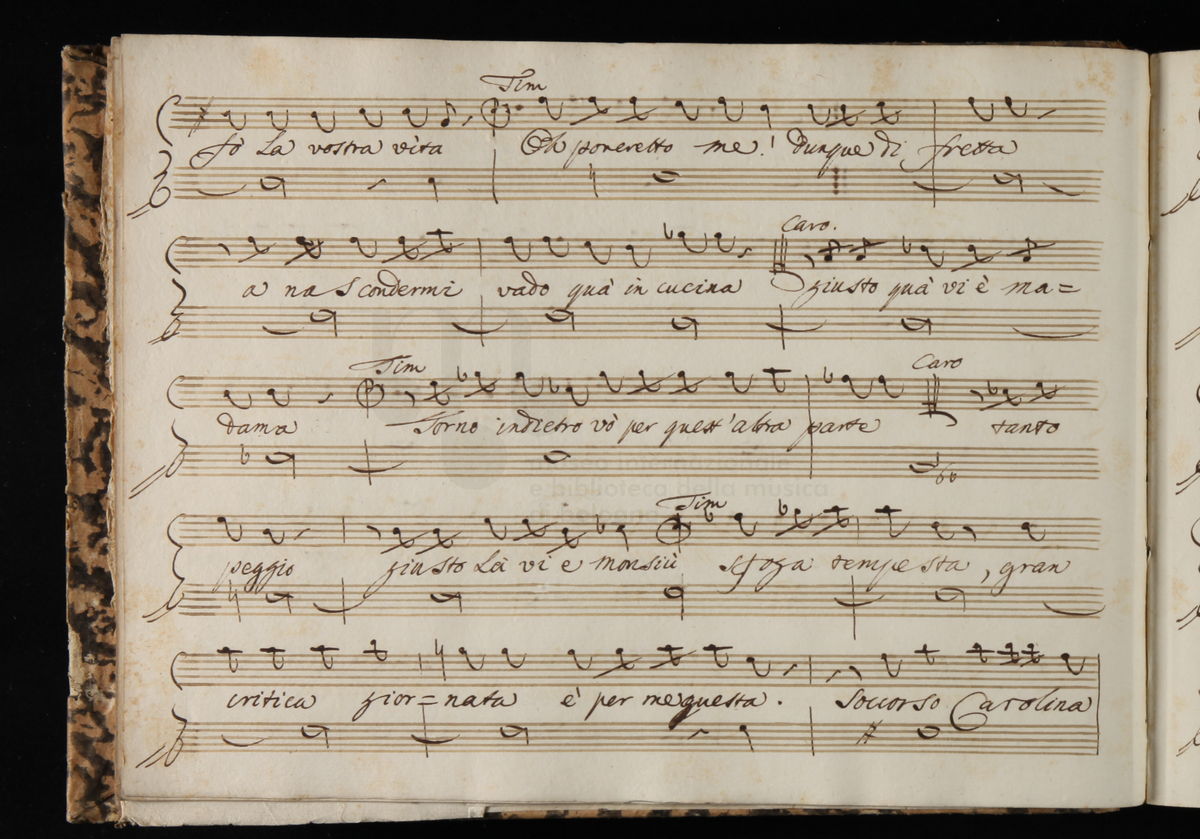 Tim
Fò la vostra vita Oh poveretto me! dunque di fretta
Caro.
a nascondermi vado quà in cucina giusto quà vi è ma=
Tim Caro
dama Torno indietro vò per quest'altra parte tanto
museo internazionale
e biblioteca della musica
di bologna
Tim
peggio giusto là vi e monsiù sfoga tempesta, gran
critica gior=nata è per me questa. Soccorso Carolina